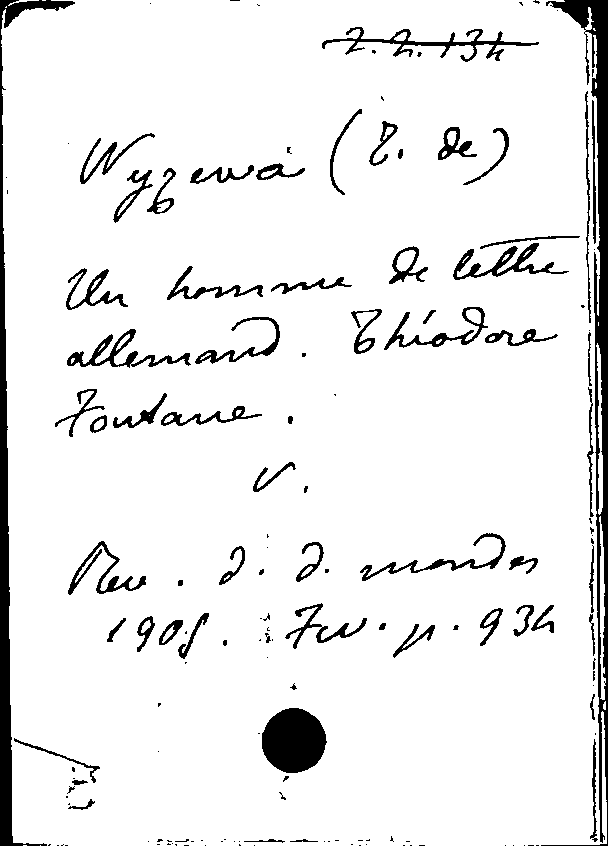 2.2.134
Wyzewa (T. de)
Un homme de lettre
allemand. Théodore
Fontane.
V.
Rev. d. d. mondes
1905. Fev. p. 934